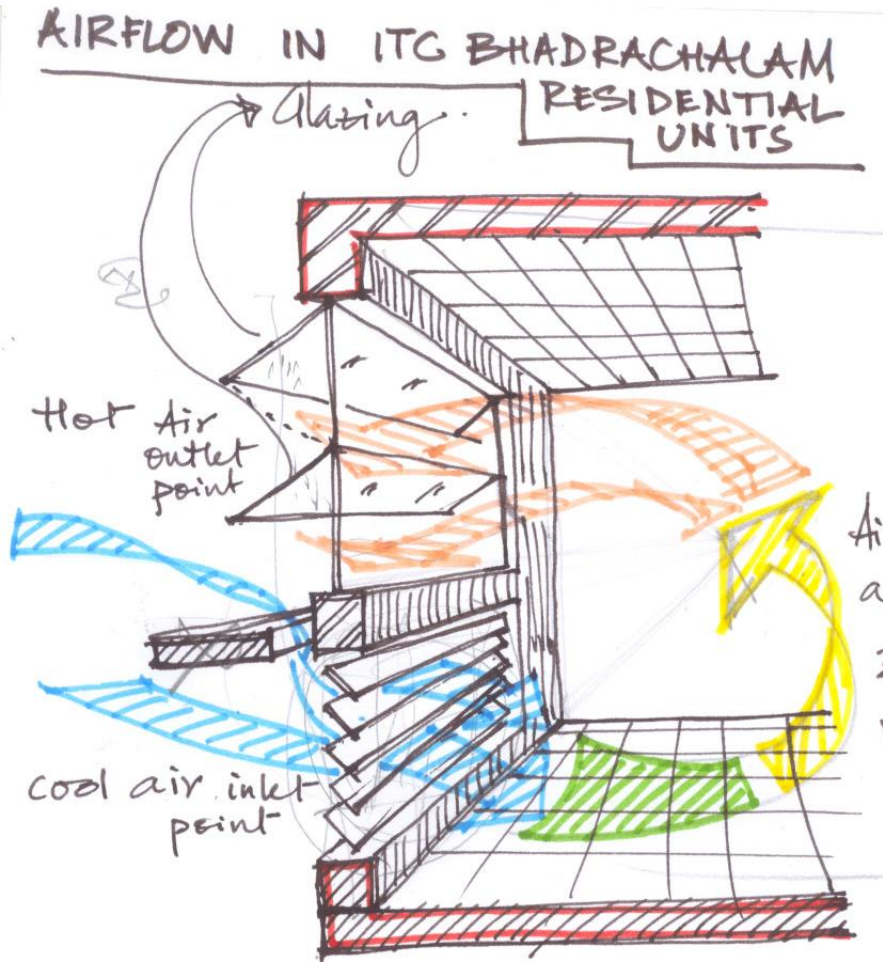 AIRFLOW IN ITC BHADRACHALAM
RESIDENTIAL
UNITS
Glazing.
Hot Air
outlet
point
Ai
a
cool air inlet
point